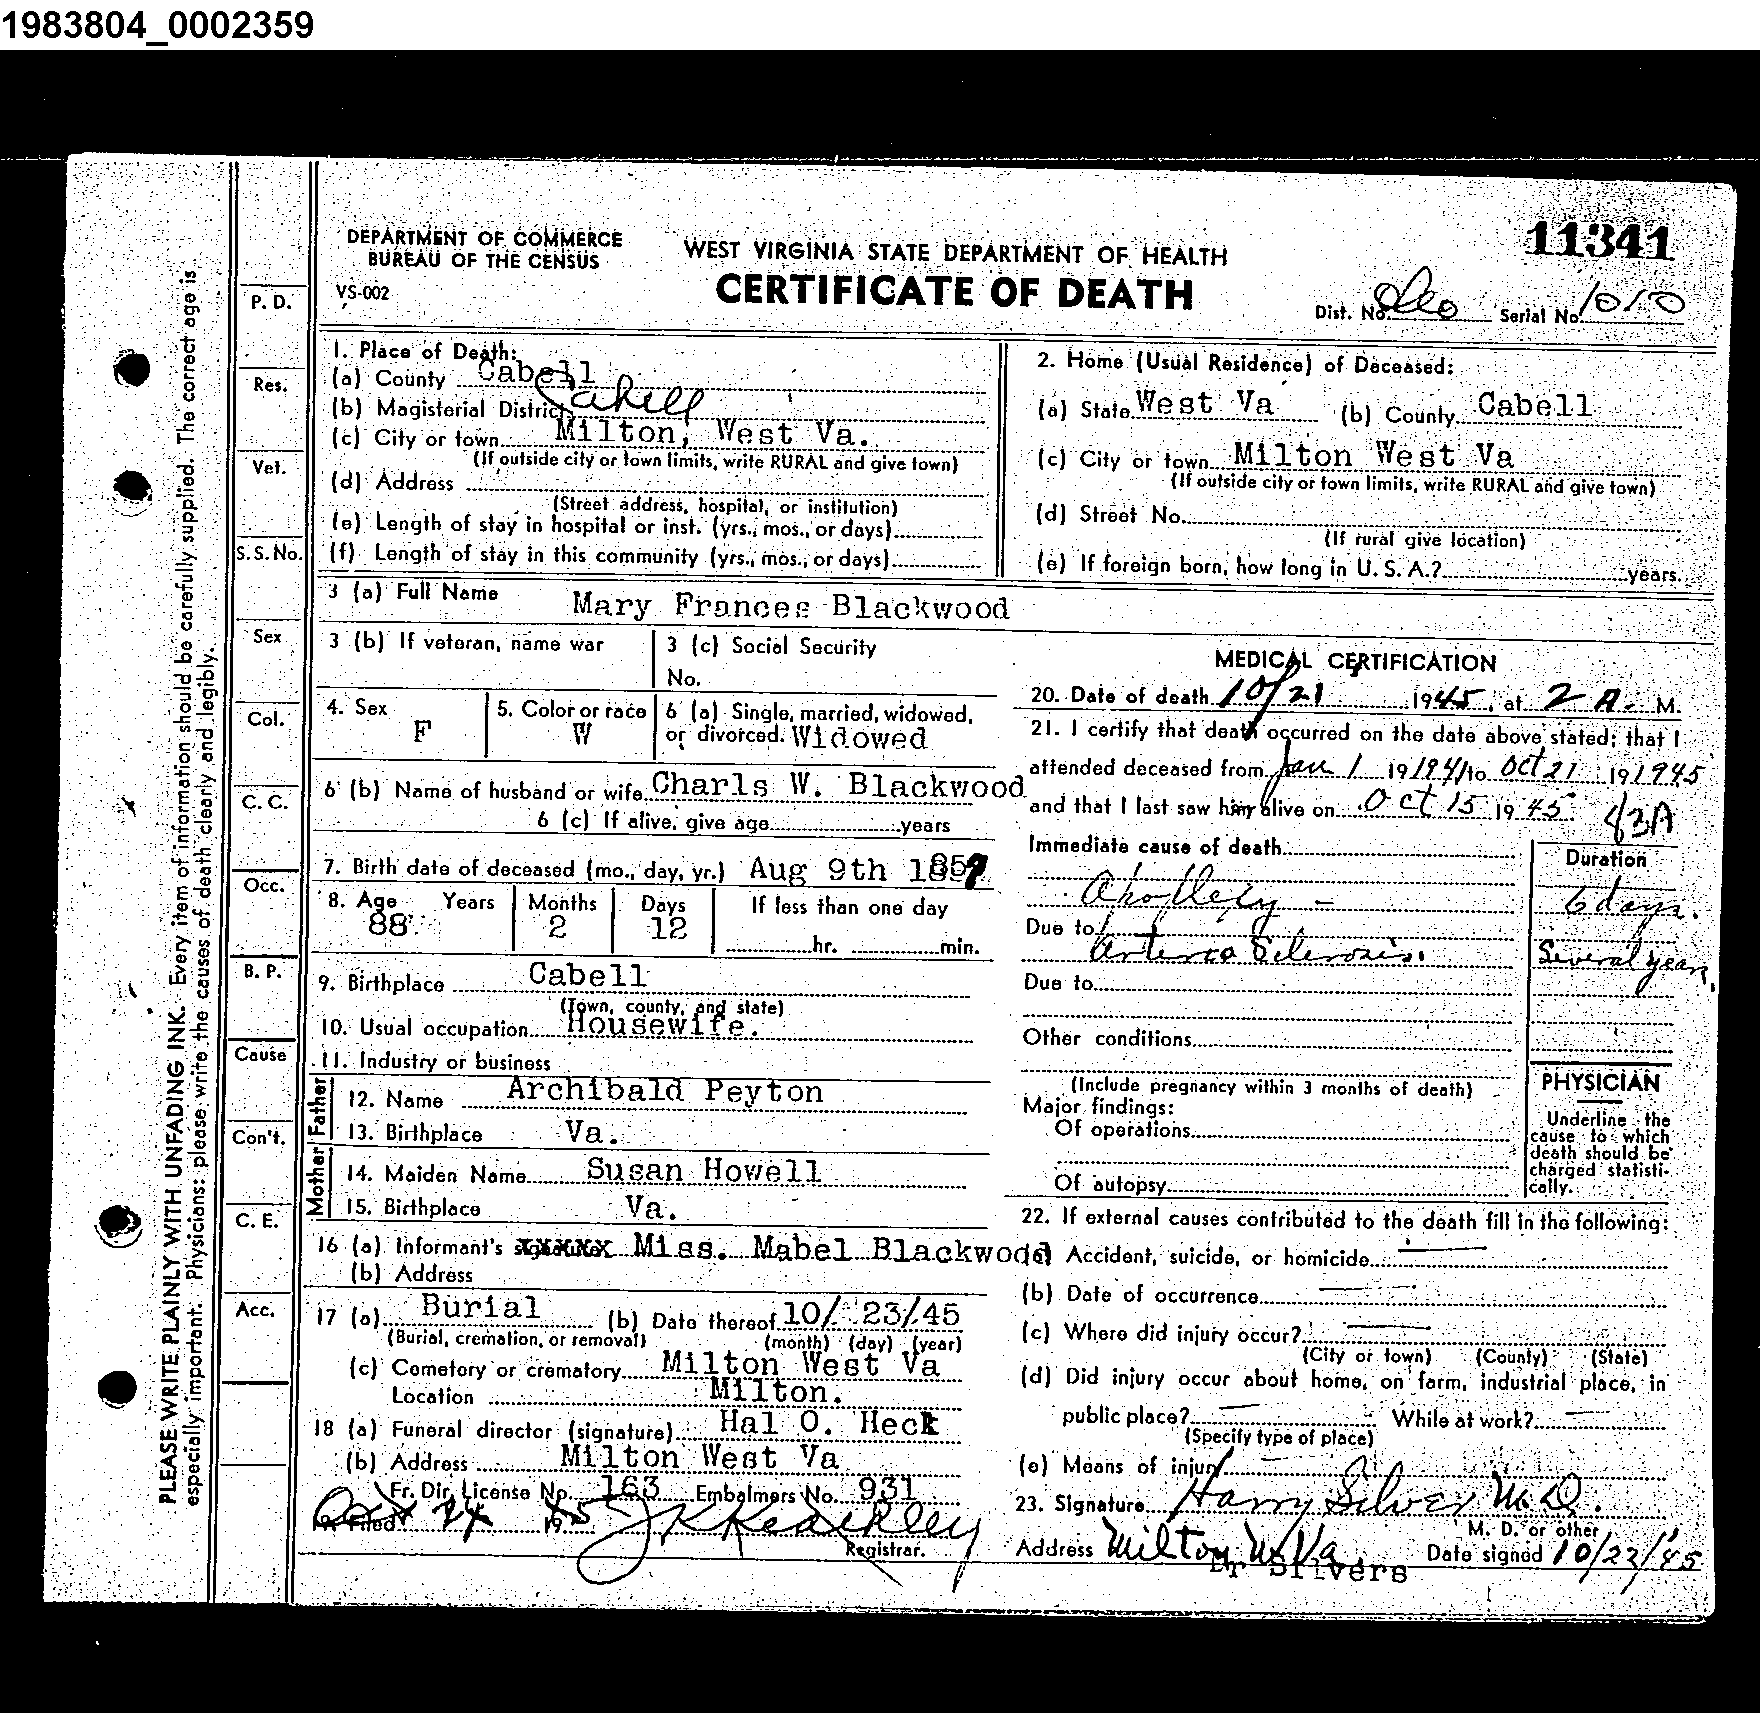 1983804_0002359
11341
DEPARTMENT OF COMMERCE
BUREAU OF THE CENSUS
VS-002
WEST VIRGINIA STATE DEPARTMENT OF HEALTH
CERTIFICATE OF DEATH
Dist. No. Serial No. 1010
PLEASE WRITE PLAINLY WITH UNFADING INK. Every item of information should be carefully supplied. The correct age is
especially important. Physicians: please write the causes of death clearly and legibly.
P. D.
Res.
Vet.
S. S. No.
Sex
Col.
C. C.
Occ.
B. P.
Cause
Con't.
C. E.
Acc.
1. Place of Death:
(a) County Cabell
(b) Magisterial District Cabell
(c) City or town Milton, West Va.
(If outside city or town limits, write RURAL and give town)
(d) Address
(Street address, hospital, or institution)
(e) Length of stay in hospital or inst. (yrs., mos., or days)
(f) Length of stay in this community (yrs., mos., or days)
2. Home (Usual Residence) of Deceased:
(a) State West Va (b) County Cabell
(c) City or town Milton West Va
(If outside city or town limits, write RURAL and give town)
(d) Street No.
(If rural give location)
(e) If foreign born, how long in U. S. A.? years.
3 (a) Full Name Mary Frances Blackwood
3 (b) If veteran, name war
3 (c) Social Security
No.
4. Sex F
5. Color or race W
6 (a) Single, married, widowed,
or divorced. Widowed
6 (b) Name of husband or wife Charls W. Blackwood
6 (c) If alive, give age years
7. Birth date of deceased (mo., day, yr.) Aug 9th 1857
8. Age Years Months Days If less than one day
88 2 12 hr. min.
9. Birthplace Cabell
(Town, county, and state)
10. Usual occupation Housewife.
11. Industry or business
Father
12. Name Archibald Peyton
13. Birthplace Va.
Mother
14. Maiden Name Susan Howell
15. Birthplace Va.
16 (a) Informant's signature Miss. Mabel Blackwood
(b) Address
17 (a) Burial (b) Date thereof 10/ 23/45
(Burial, cremation, or removal) (month) (day) (year)
(c) Cemetery or crematory Milton West Va
Location Milton.
18 (a) Funeral director (signature) Hal O. Heck
(b) Address Milton West Va
Fr. Dir. License No. 163 Embalmers No. 931
19. Filed Oct 24 1945
Registrar.
MEDICAL CERTIFICATION
20. Date of death 10/21 1945, at 2 A. M.
21. I certify that death occurred on the date above stated; that I
attended deceased from Jan 1 19194/ to Oct 21 191945
and that I last saw him alive on Oct 15 1945. 83A
Immediate cause of death
Duration
6 days.
Due to Arterio Sclerosis. Several years,
Due to
Other conditions
(Include pregnancy within 3 months of death)
Major findings:
Of operations
Of autopsy
PHYSICIAN
Underline the
cause to which
death should be
charged statisti-
cally.
22. If external causes contributed to the death fill in the following:
(a) Accident, suicide, or homicide
(b) Date of occurrence
(c) Where did injury occur?
(City or town) (County) (State)
(d) Did injury occur about home, on farm, industrial place, in
public place? While at work?
(Specify type of place)
(e) Means of injury
23. Signature Harry Silver M.D.
M. D. or other
Address Milton W. Va. Date signed 10/22/45
Dr Silvers